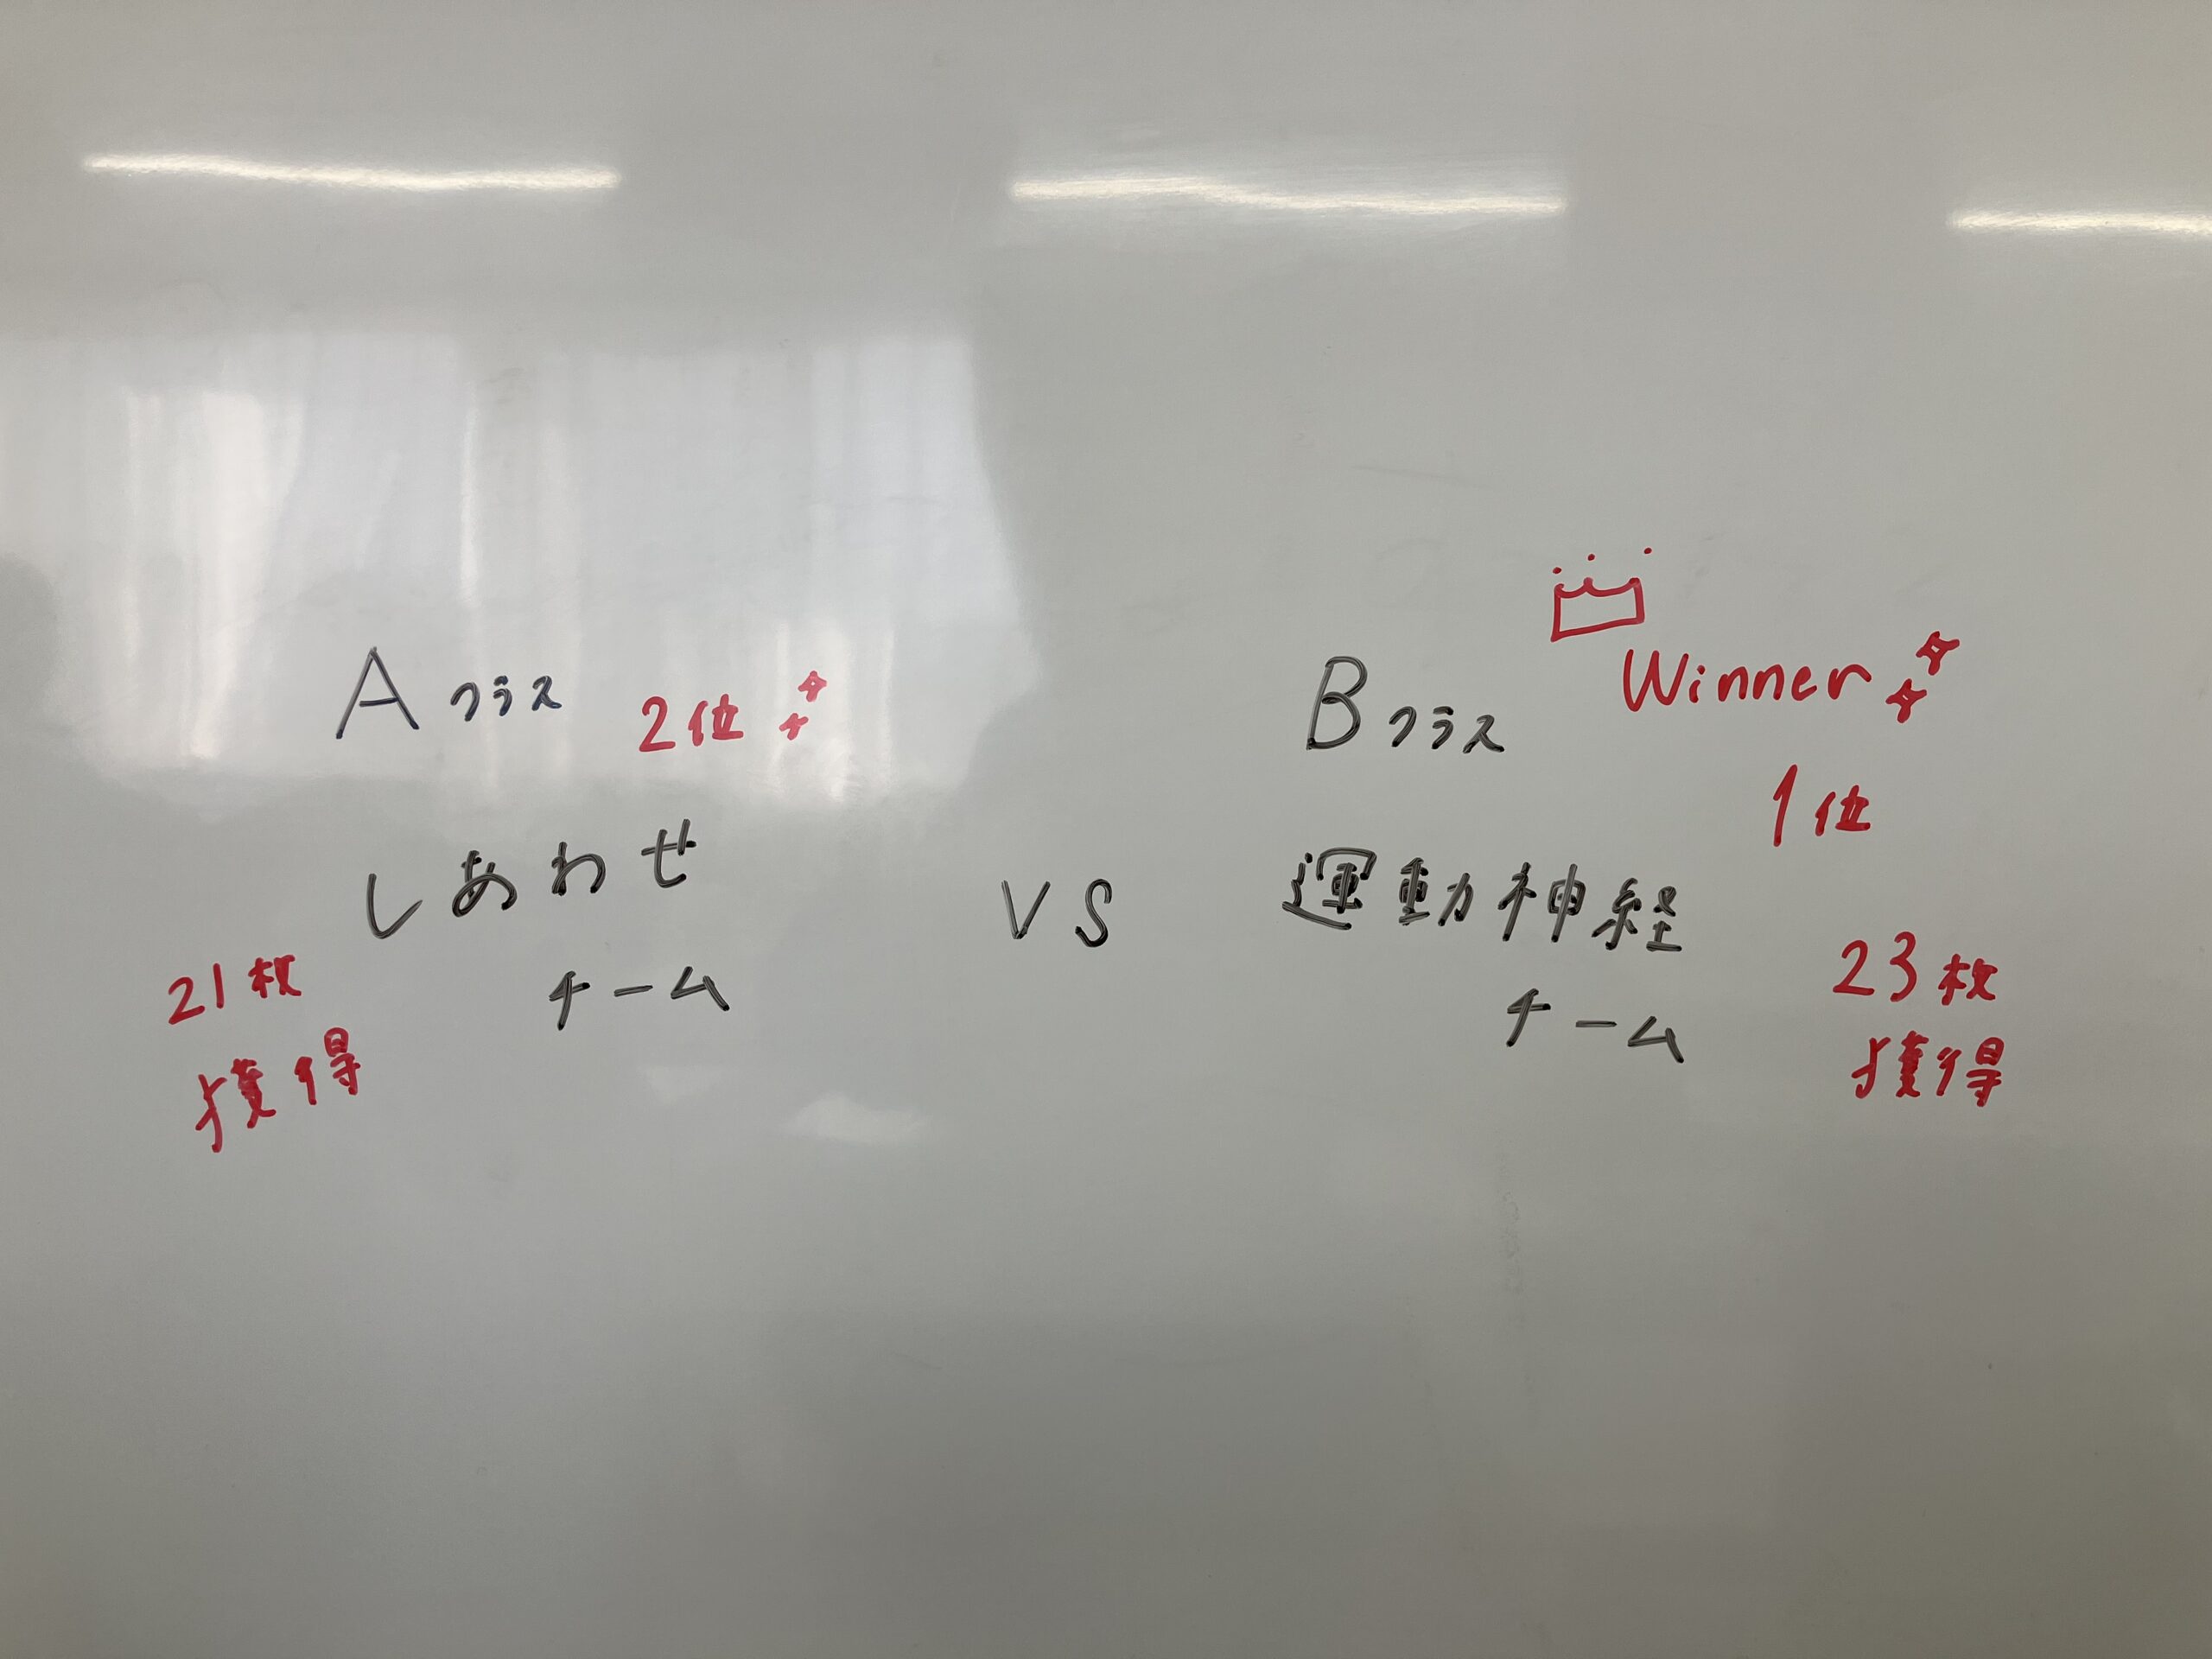 Aクラス 2位
しあわせ
チーム
21枚
獲得
VS
Winner
Bクラス
1位
運動神経
チーム
23枚
獲得